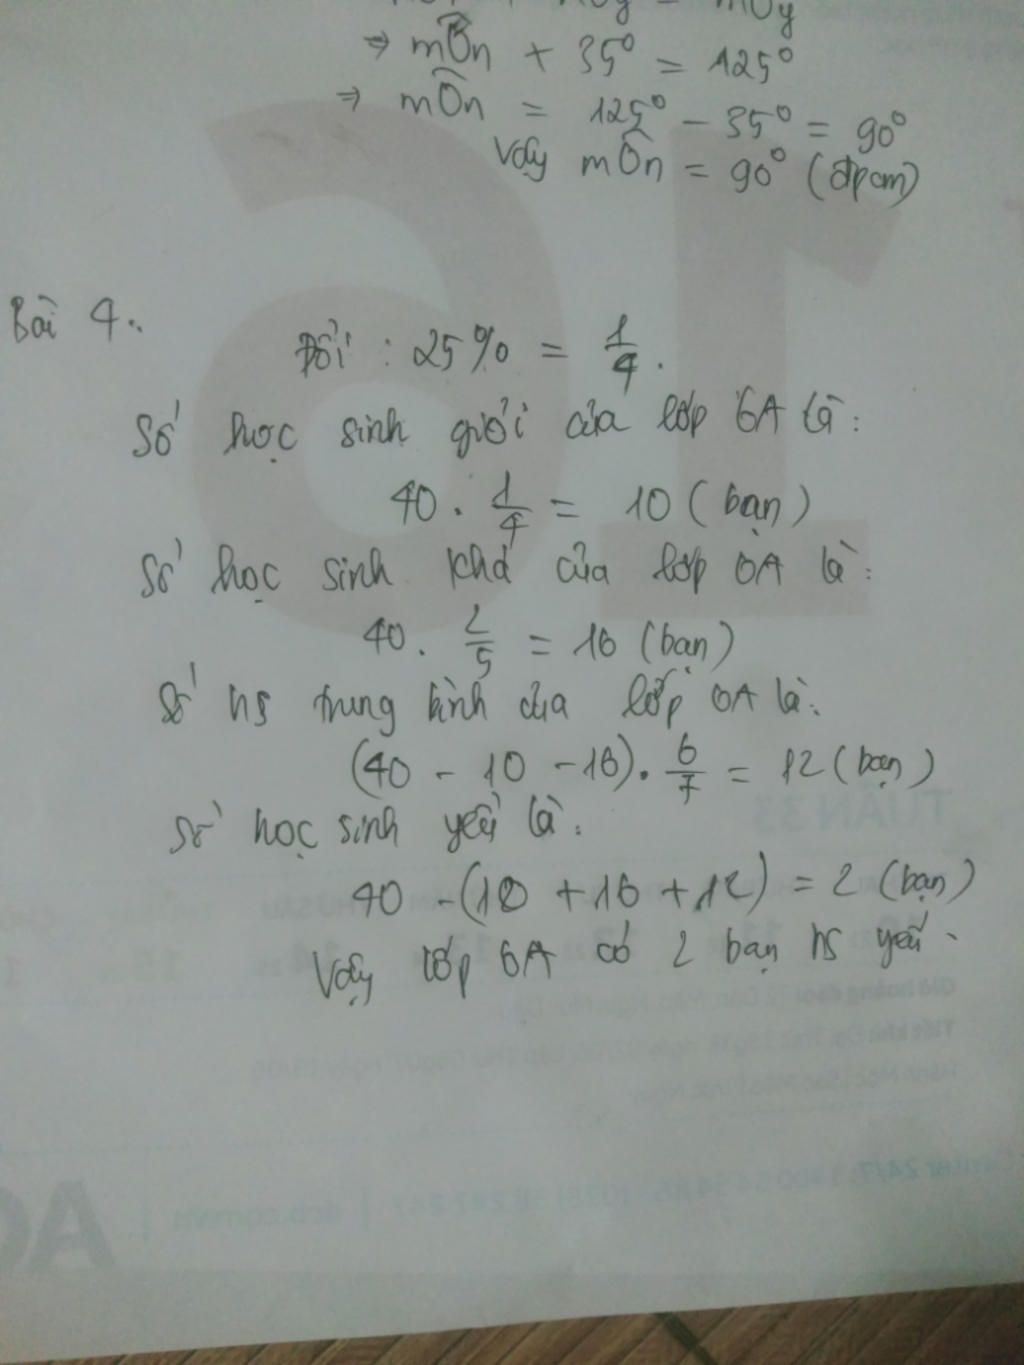 mÔy
⇒ mÔn + 35° = 125°
⇒ mÔn = 125° - 35° = 90°
Vậy mÔn = 90° (đpcm)
Bài 4.
Đổi : 25% = 1/4.
Số học sinh giỏi của lớp 6A là:
40 . 1/4 = 10 (bạn)
Số học sinh khá của lớp 6A là:
40 . 2/5 = 16 (bạn)
Số hs trung bình của lớp 6A là:
(40 - 10 - 16) . 6/7 = 12 (bạn)
Số học sinh yếu là:
40 - (10 + 16 + 12) = 2 (bạn)
Vậy lớp 6A có 2 bạn hs yếu.